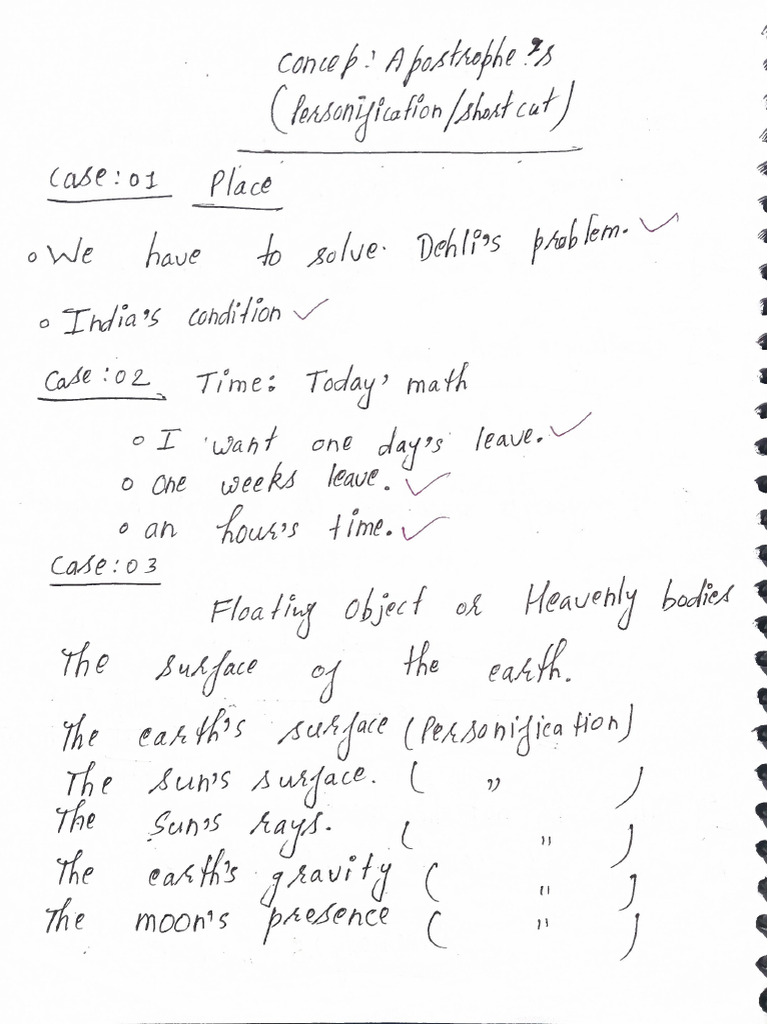 Concep: Apostrophe 's
(Personification/shortcut)
Case:01 Place
We have to solve. Dehli's problem.
India's condition
Case:02 Time: Today' math
I want one day's leave.
One weeks leave.
an hour's time.
Case:03
Floating Object or Heavenly bodies
The surface of the earth.
The earth's surface (Personification)
The sun's surface. ( " )
The Sun's rays. ( " )
The earth's gravity ( " )
The moon's presence ( " )